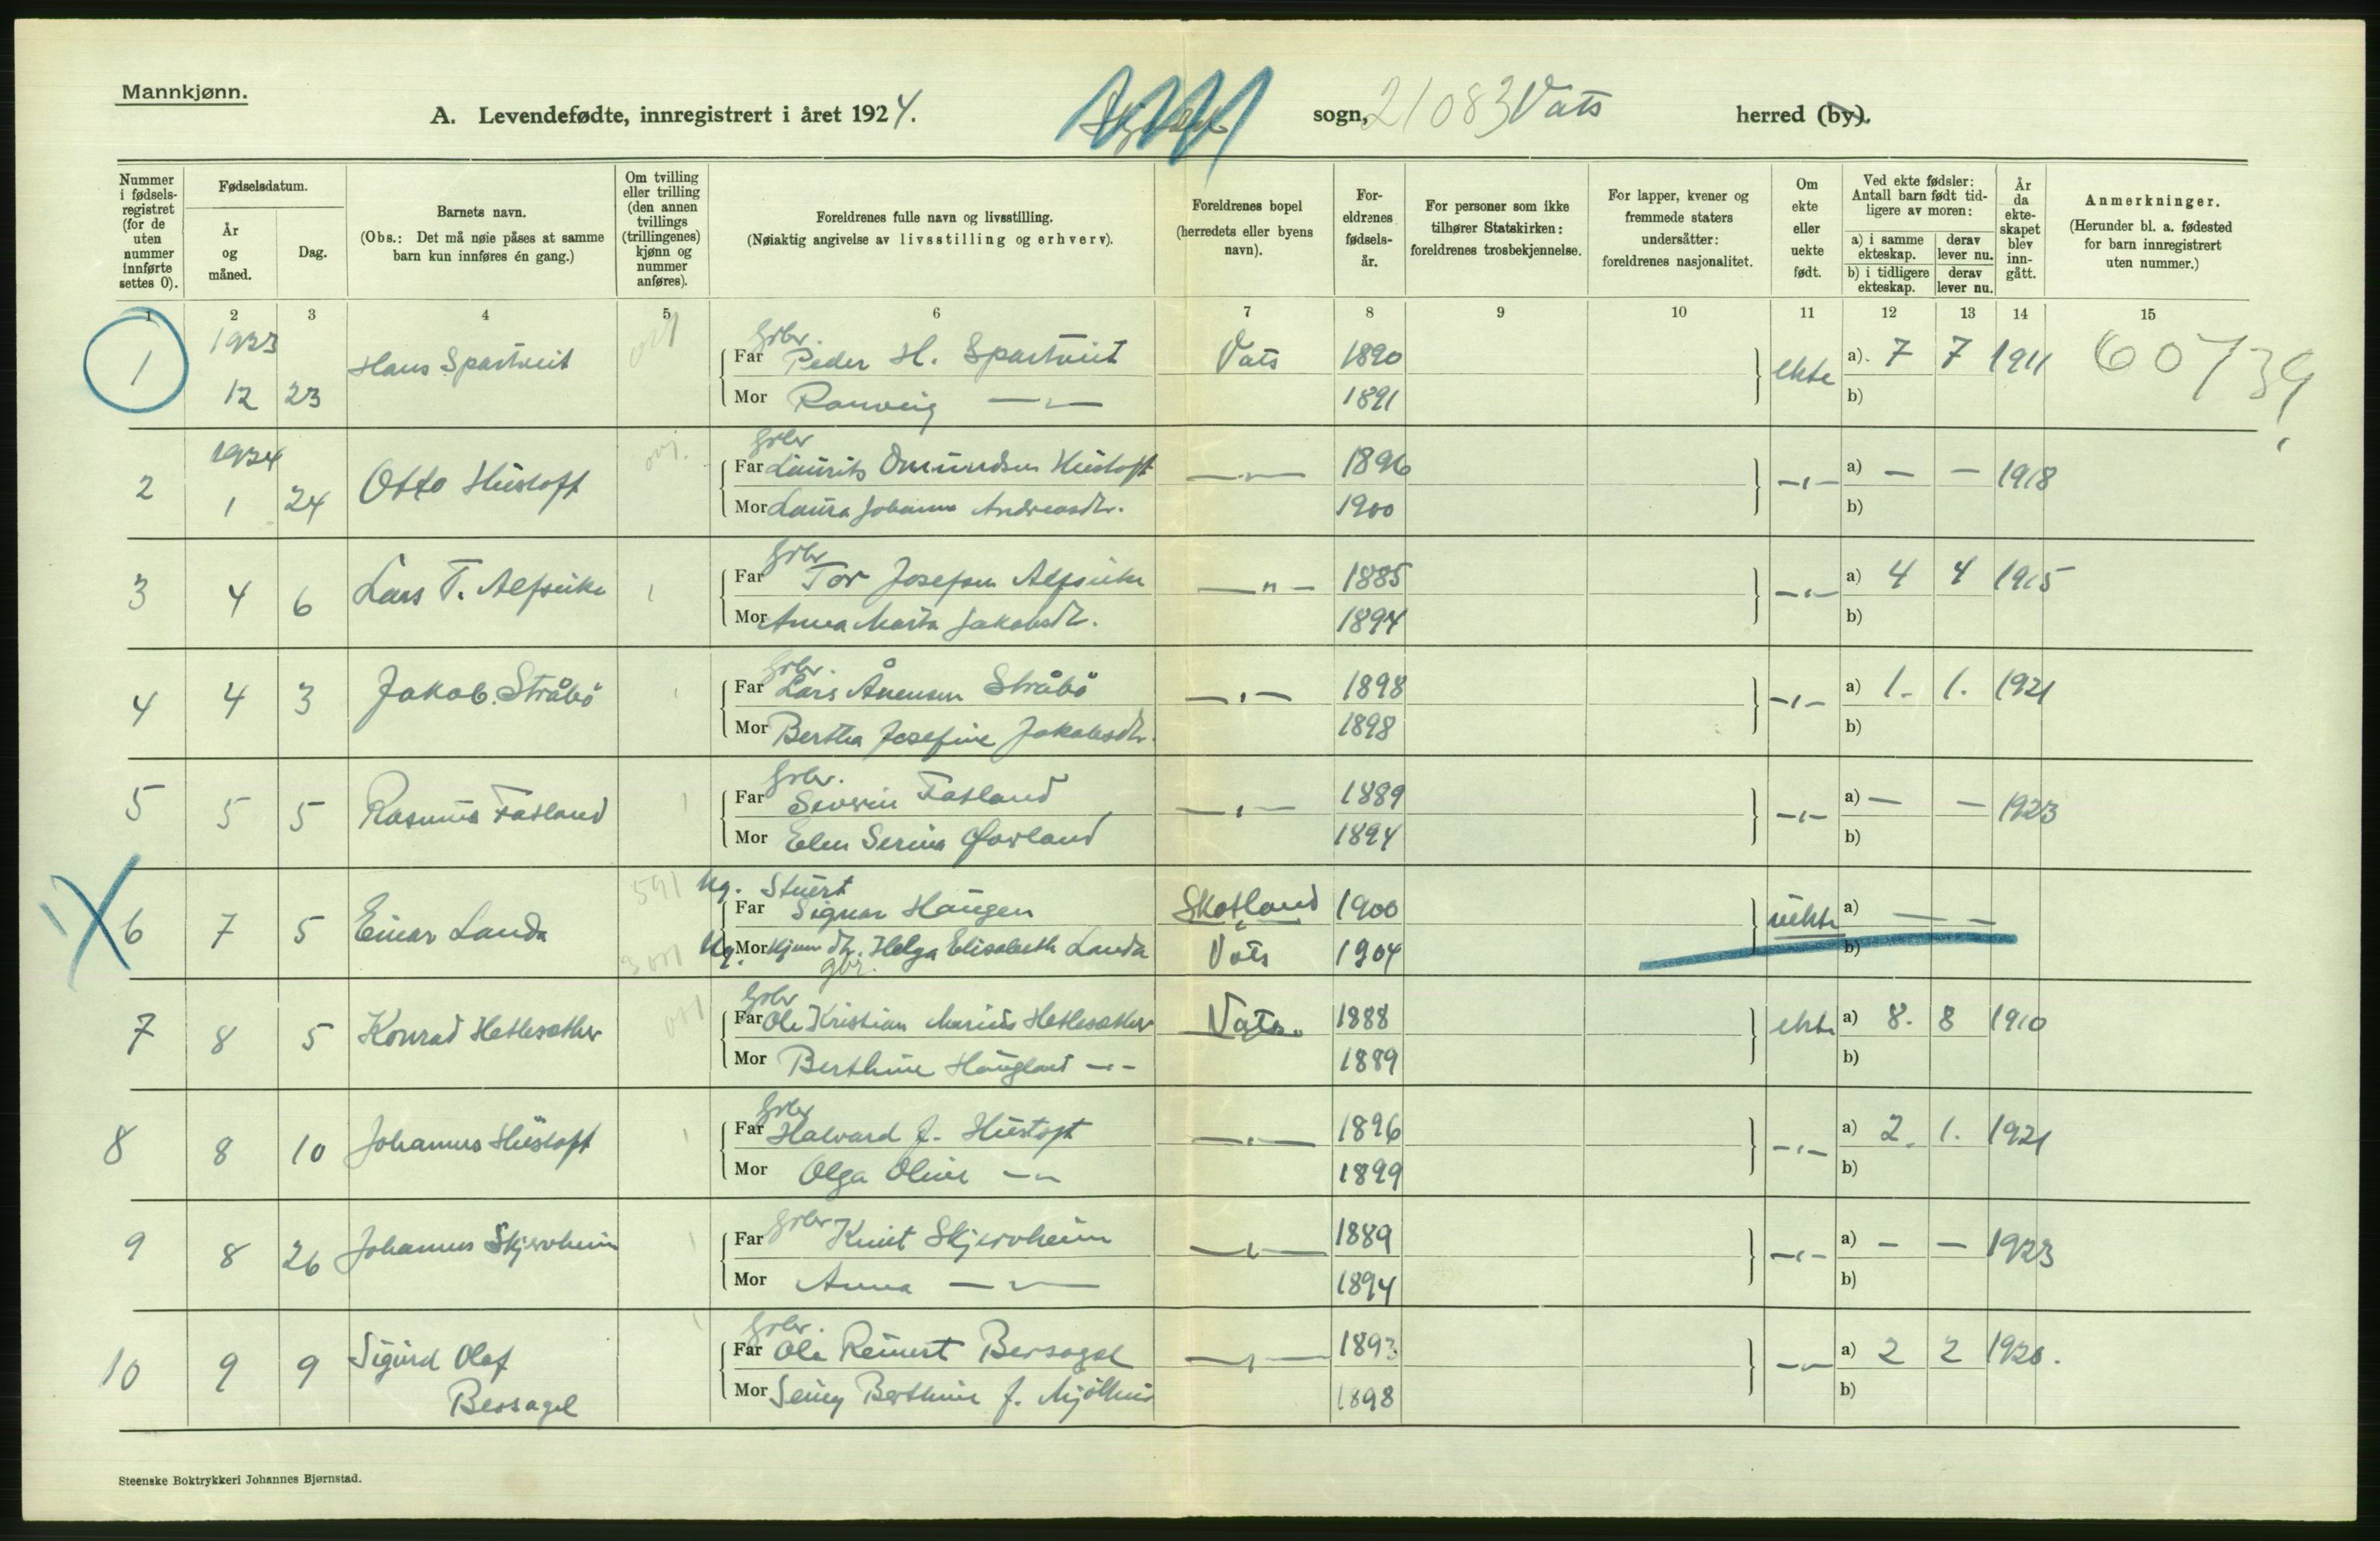 Mannkjønn.
A. Levendefødte, innregistrert i året 1924. sogn, 21083 Vats herred (by).
Nummer i fødsels-registret (for de uten nummer innførte settes 0).
Fødselsdatum.
År og måned.
Dag.
Barnets navn.
(Obs.: Det må nøie påses at samme barn kun innføres én gang.)
Om tvilling eller trilling (den annen tvillings (trillingenes) kjønn og nummer anføres).
Foreldrenes fulle navn og livsstilling.
(Nøiaktig angivelse av livsstilling og erhverv).
Foreldrenes bopel (herredets eller byens navn).
For-eldrenes fødsels-år.
For personer som ikke tilhører Statskirken: foreldrenes trosbekjennelse.
For lapper, kvener og fremmede staters undersåtter: foreldrenes nasjonalitet.
Om ekte eller uekte født.
Ved ekte fødsler: Antall barn født tid-ligere av moren:
a) i samme ekteskap.
derav lever nu.
b) i tidligere ekteskap.
derav lever nu.
År da ekte-skapet blev inn-gått.
Anmerkninger.
(Herunder bl. a. fødested for barn innregistrert uten nummer.)
1 2 3 4 5 6 7 8 9 10 11 12 13 14 15
1923 Grbr.
1 12 23 Hans Spartveit Far Peder H. Spartveit Vats 1890 ekte a). 7 7 1911 60739
Mor Ranveig —"— 1891 b)
1924 Grbr
2 1 24 Otto Hustoft Far Laurits Omundsen Hustoft —"— 1896 —"— a) — — 1918
Mor Laura Johanne Andreasdtr. 1900 b)
Grbr
3 4 6 Lars T. Alfseike Far Tor Josefsen Alfseike —"— 1885 —"— a) 4 4 1915
Mor Anna Marta Jakobsdtr. 1894 b)
Grbr.
4 4 3 Jakob Stråbö Far Lars Ånensen Stråbö —"— 1898 —"— a) 1. 1. 1921
Mor Bertha Josefine Jakobsdtr. 1898 b)
Grbr.
5 5 5 Rasmus Fatland Far Severin Fatland —"— 1889 —"— a) — — 1923
Mor Elen Serina Øvrland 1894 b)
591 Ug. Stuert
6 7 5 Einar Landa Far Sigvar Haugen Skotland 1900 uekte a) — —
Ug. Mor Hjem. dtr. Helga Elisabeth Landa Vats 1904 b)
gbr.
Grbr
7 8 5 Konrad Hetlesæther Far Ole Kristian Marius Hetlesæther Vats. 1888 ekte a) 8. 8 1910
Mor Berthine Haugland —"— 1889 b)
Grbr
8 8 10 Johannes Hustoft Far Halvard J. Hustoft —"— 1896 —"— a) 2. 1. 1921
Mor Olga Oline —"— 1899 b)
Grbr
9 8 26 Johannes Skjervheim Far Knut Skjervheim —"— 1889 —"— a) — — 1923
Mor Anna —"— 1894 b)
Grbr.
10 9 9 Sigurd Olaf Far Ole Reinert Bersagel —"— 1893 —"— a) 2 2 1920.
Bersagel Mor Berthine J. 1898 b)
Steenske Boktrykkeri Johannes Bjørnstad.